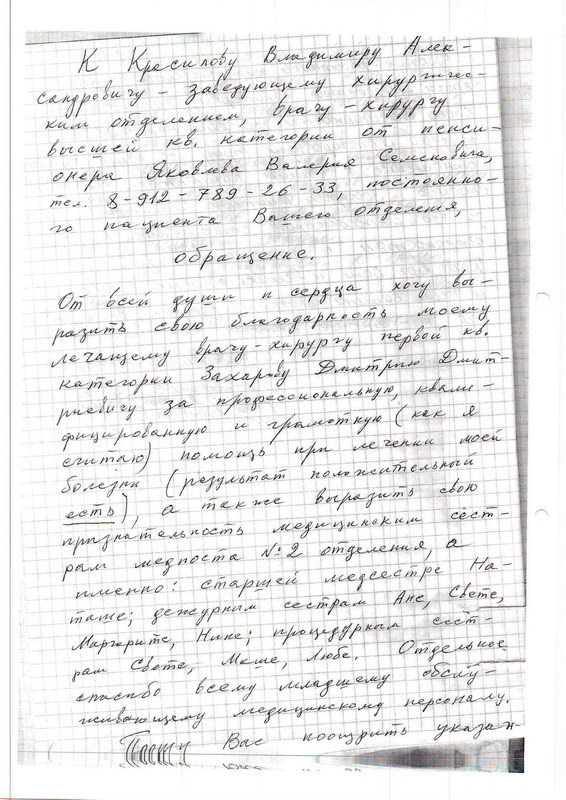 К Красилову Владимиру Алек-
сандровичу – заведующему хирургичес-
ким отделением, врачу – хирургу
высшей кв. категории от пенси-
онера Яковлева Валерия Семеновича,
тел. 8-912-789-26-33, постоянно-
го пациента Вашего отделения,
обращение.
От всей души и сердца хочу вы-
разить свою благодарность моему
лечащему врачу-хирургу первой кв.
категории Захарову Дмитрию Дмит-
риевичу за профессиональную, квали-
фицированную и грамотную (как я
считаю) помощь при лечении моей
болезни (результат положительный
есть), а также выразить свою
признательность медицинским сёст-
рам медпоста № 2 отделения, а
именно: старшей медсестре На-
таше; дежурным сестрам Ане, Свете,
Маргарите, Нине; процедурным сест-
рам Свете, Маше, Любе. Отдельное
спасибо всему младшему обслу-
живающему медицинскому персоналу.
Прошу Вас поощрить указан-